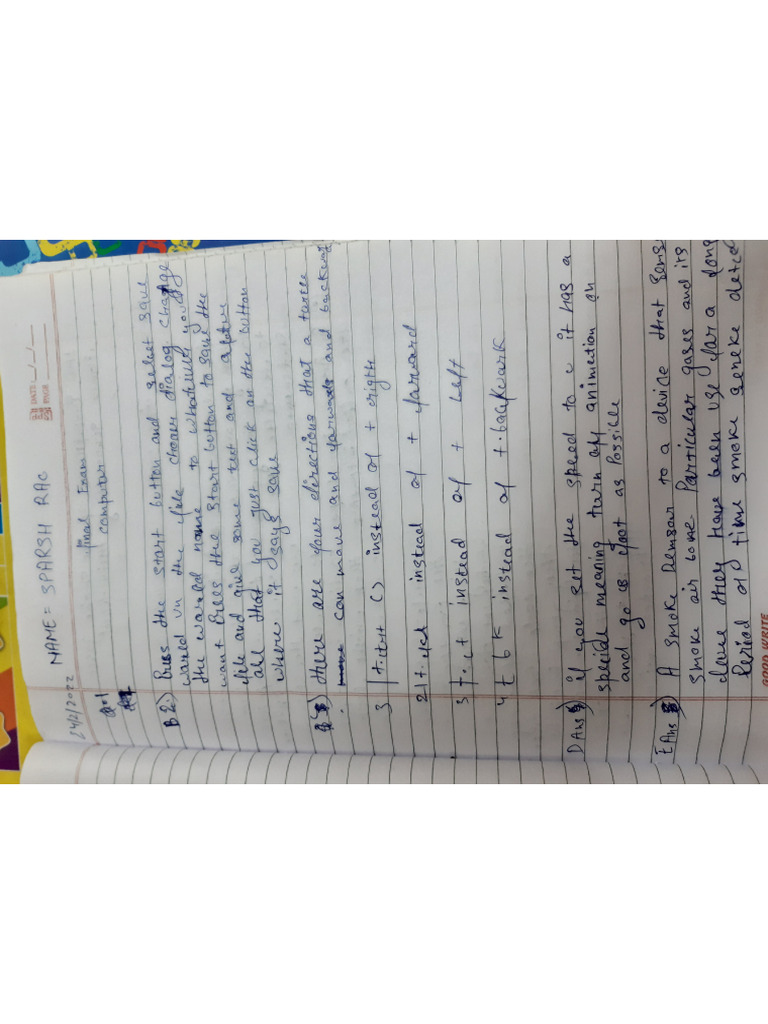 24/2/2022
NAME = SPARSH RAO
DATE
PAGE
final Exam
computer
Q-1
B 2) Press the start button and select save
world in the file chooser dialog change
the world name to whatever you
want Press the start button to save the
file and give some text and after
all that you just click on the button
where it says save
there are four directions that a turtle
can move and forward and backward
instead of t right
2 instead of t forward
3 instead of t left
4 t bk instead of t. backwark
D Ans) if you set the speed to it has a
special meaning turn off animation an
and go is fast as Possible
E Ans) A smoke sensor to a device that sens
smoke air borne Particular gases and its
done they have been use for a long
Period of time smoke detec
GOOD WRITE